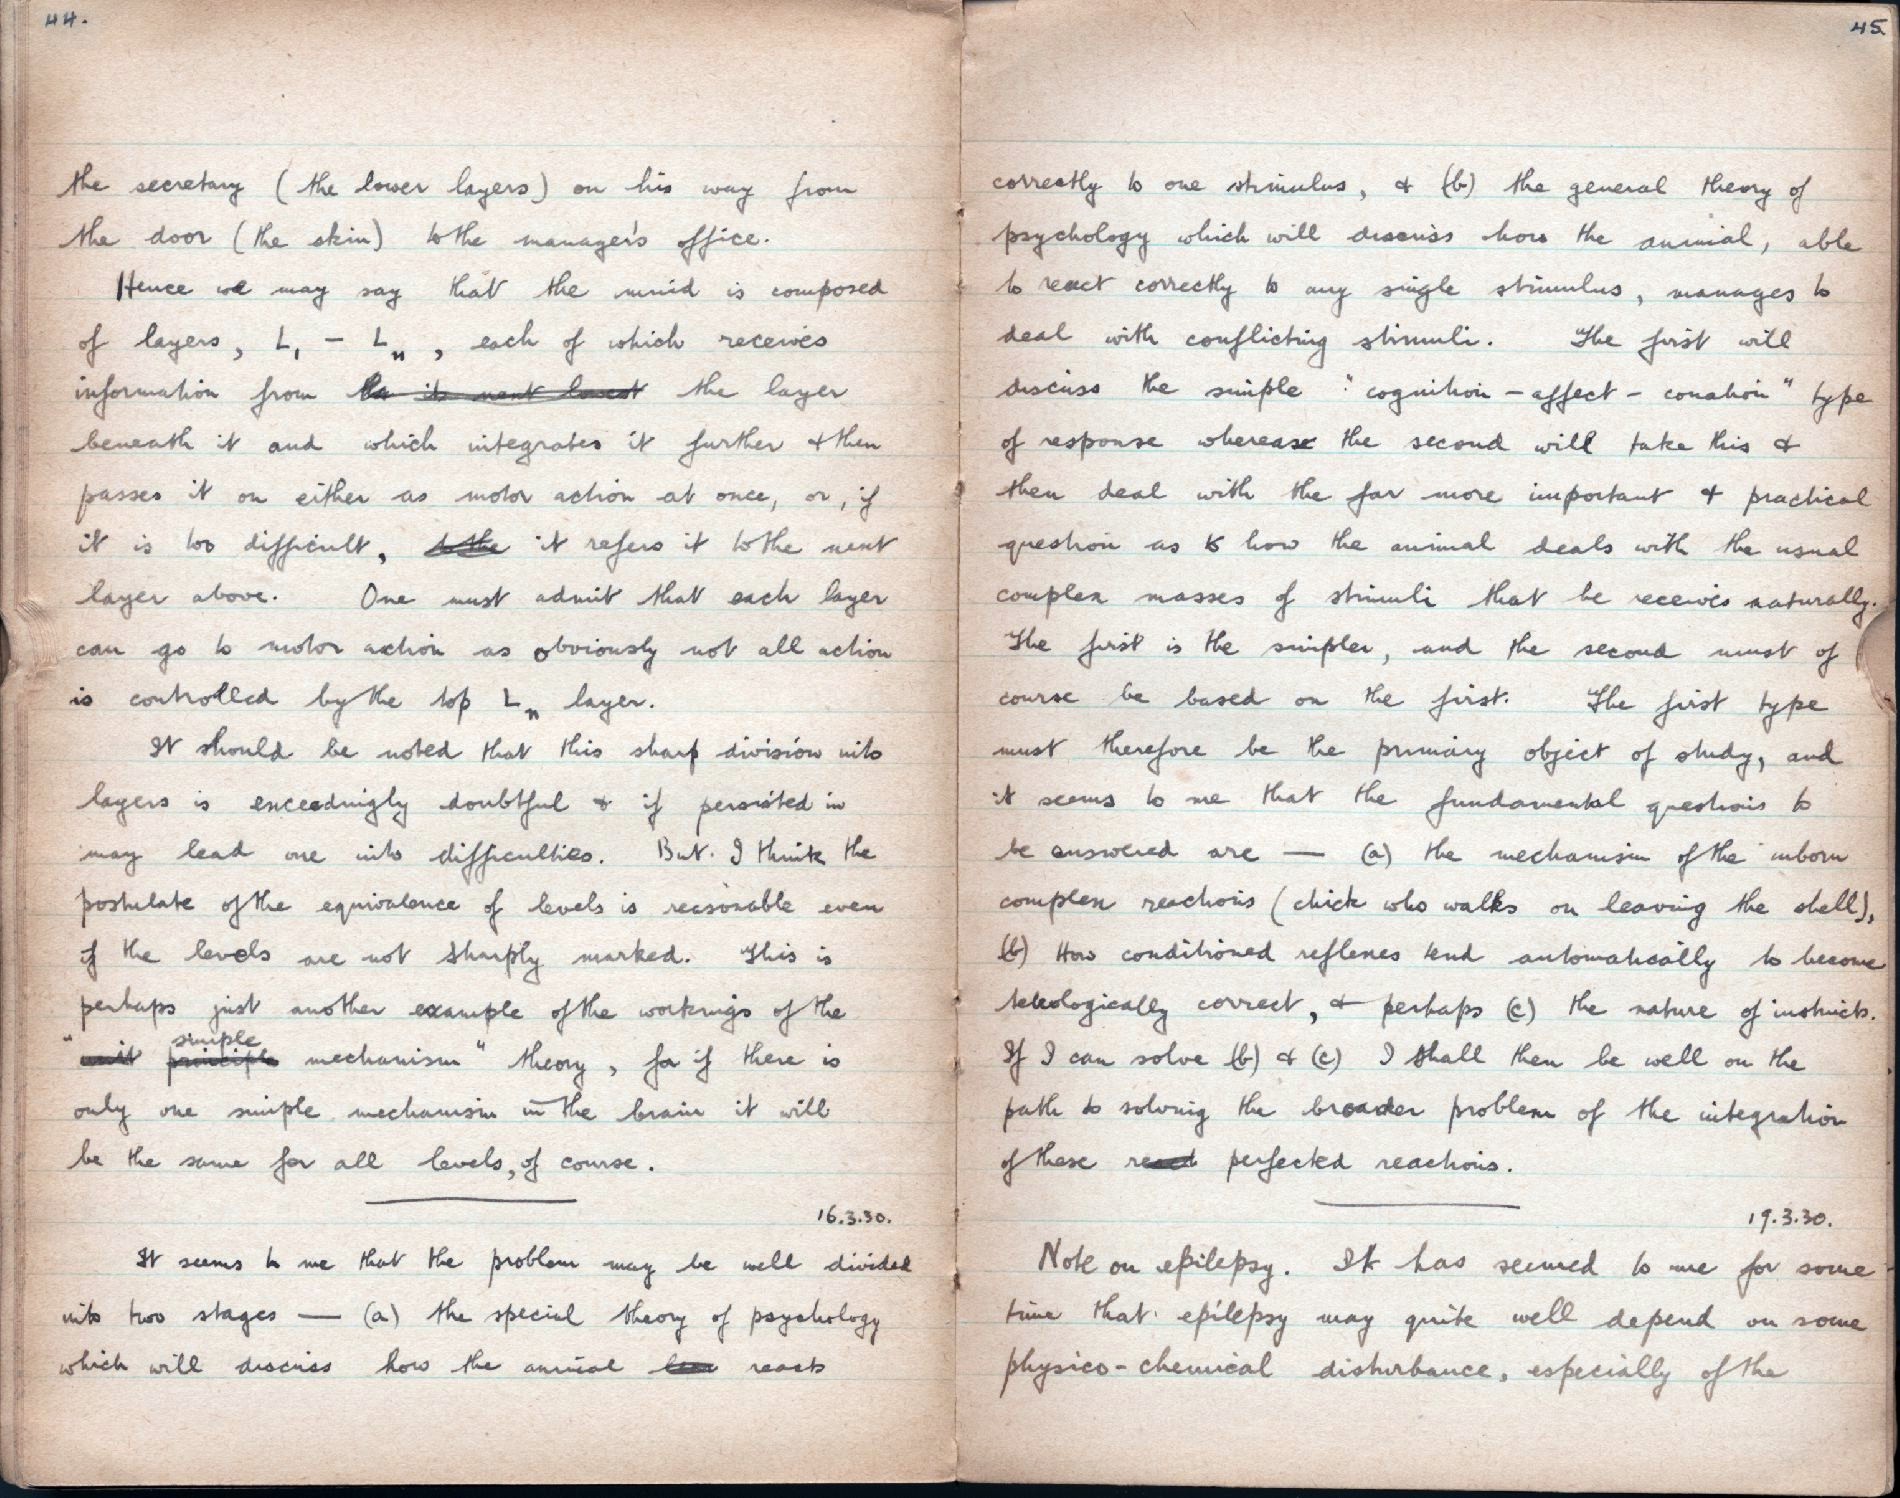 44.
the secretary (the lower layers) on his way from
the door (the skin) to the manager's office.
Hence we may say that the mind is composed
of layers, L₁ - Lₙ, each of which receives
information from the it next lowest the layer
beneath it and which integrates it further & then
passes it on either as motor action at once, or, if
it is too difficult, to the it refers it to the next
layer above. One must admit that each layer
can go to motor action as obviously not all action
is controlled by the top Lₙ layer.
It should be noted that this sharp division into
layers is exceedingly doubtful & if persisted in
may lead one into difficulties. But I think the
postulate of the equivalence of levels is reasonable even
if the levels are not sharply marked. This is
perhaps just another example of the workings of the
simple
"unit principle mechanism" theory, for if there is
only one simple mechanism in the brain it will
be the same for all levels, of course.
16.3.30.
It seems to me that the problem may be well divided
into two stages — (a) the special theory of psychology
which will discuss how the animal reacts
45.
correctly to one stimulus, & (b) the general theory of
psychology which will discuss how the animal, able
to react correctly to any single stimulus, manages to
deal with conflicting stimuli. The first will
discuss the simple "cognition - affect - conation" type
of response whereas the second will take this &
then deal with the far more important & practical
question as to how the animal deals with the usual
complex masses of stimuli that he receives naturally.
The first is the simpler, and the second must of
course be based on the first. The first type
must therefore be the primary object of study, and
it seems to me that the fundamental questions to
be answered are — (a) the mechanism of the inborn
complex reactions (chick who walks on leaving the shell),
(b) How conditioned reflexes tend automatically to become
teleologically correct, & perhaps (c) the nature of instincts.
If I can solve (b) & (c) I shall then be well on the
path to solving the broader problem of the integration
of these perfected reactions.
19.3.30.
Note on epilepsy. It has seemed to me for some
time that epilepsy may quite well depend on some
physico-chemical disturbance, especially of the